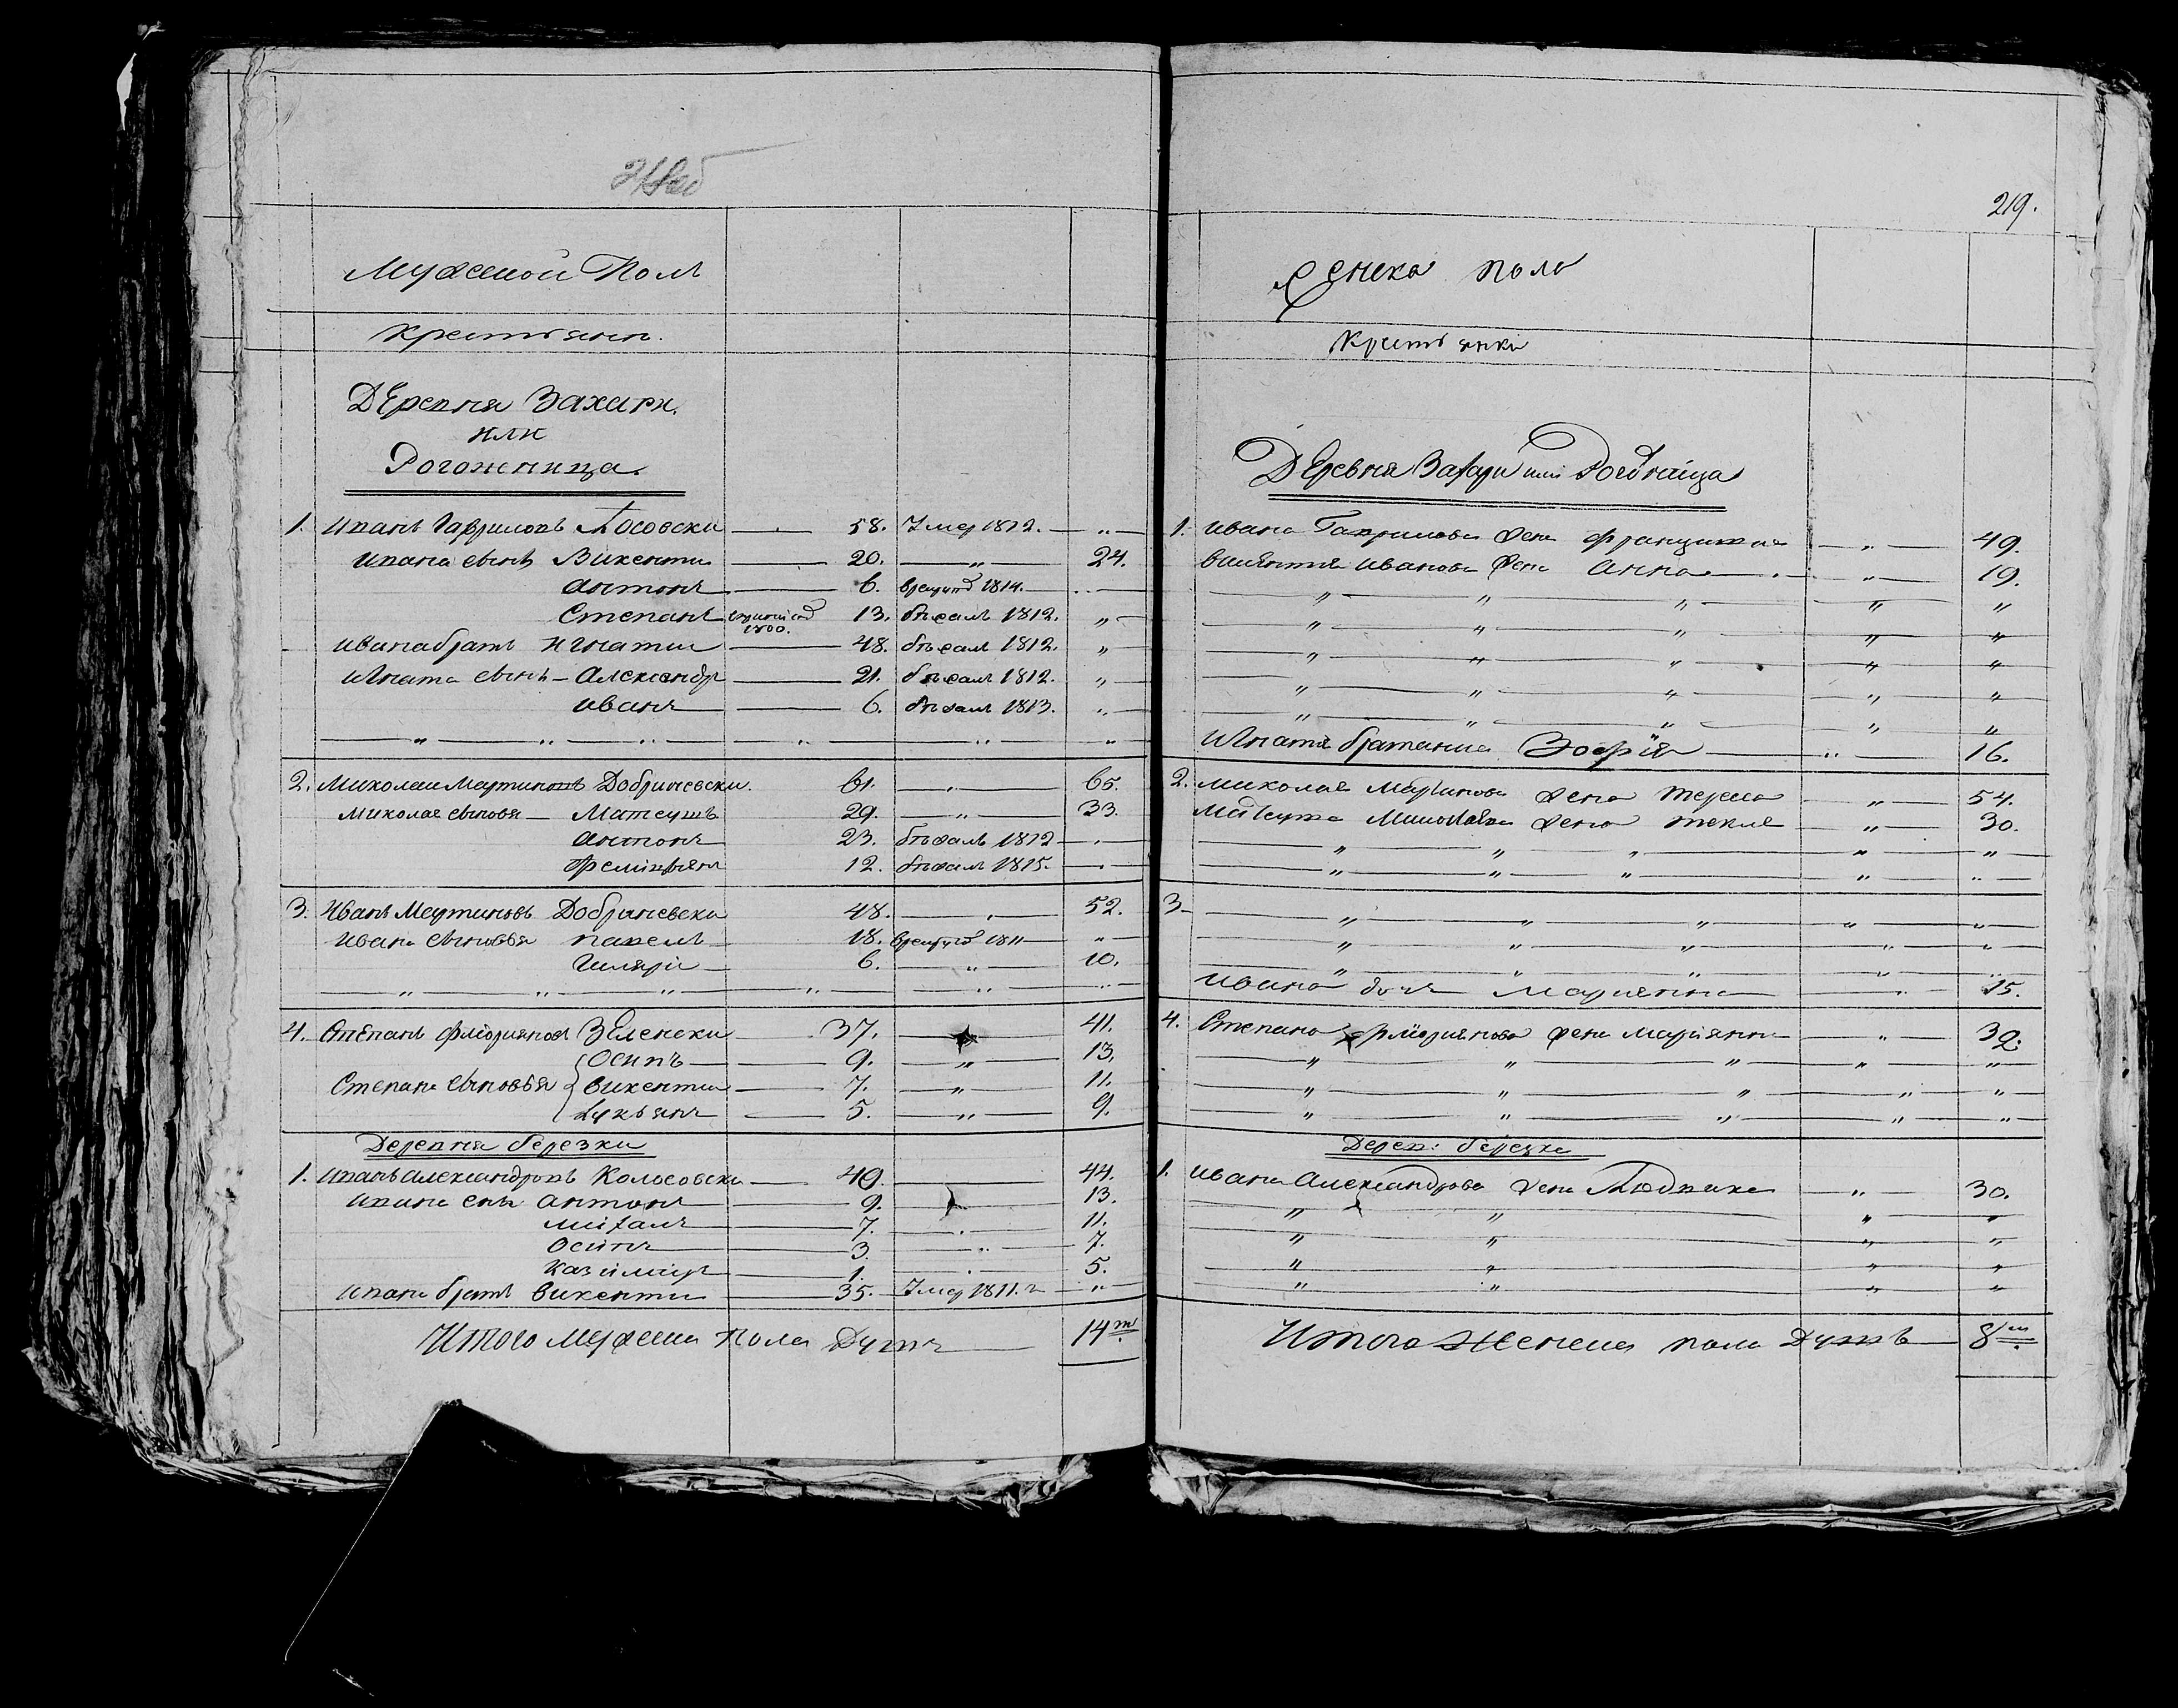 Мужеской Полъ
Крестьяни.
Деревня Захари.
или
Рогожница.
1. Иванъ Гавриловъ Косовски 58. Умер 1812. "
Ивана сынъ Викенти 20. " 24.
Антонъ 6. 1814.
Степанъ 1800. 13. бѣжалъ 1812. "
Ивана братъ Игнати 48. бѣжалъ 1812. "
Игната сынъ Александръ 21. бѣжалъ 1812. "
Иванъ 6. бѣжалъ 1813. "
" " " " " "
2. Миколаи Мартиновъ Добриневски. 61. " 65.
Миколая сыновя Матеушъ 29. " 33.
Антонъ 23. бѣжалъ 1812
12. бѣжалъ 1815.
3. Иванъ Мартиновъ Добриневски 48. " 52.
Ивана сыновья Павелъ 18. 1811 "
Гиляри 6. " 10.
" " " " " "
4. Степанъ Флорияновъ Зеленски 37. 41.
Осипъ 9. " 13.
Степана сыновья Викенти 7. " 11.
Лукьянъ 5. " 9.
Деревня Березки
1. Иванъ Александровъ Колосовски 40. 44.
Ивана снъ Антонъ 9. 13.
Михалъ 7. 11.
Осипъ 3. " 7.
Казимиръ 1. 5.
Ивана братъ Викенти 35. Умер 1811. г "
Итого Мужеска Пола Душъ 14
219.
Женска пола
Крестьянки
Деревня Захари или
1. Ивана Гаврилова жена Францишка " 49.
Викентия Иванова жена Анна " 19.
" " " " "
" " " " "
" " " " "
" " " " "
" " " " "
Игнатя братаница Зофия " 16.
2. Миколая Мартинова жена Тереса " 54.
Матеуша Миколаева жена Текля " 30.
" " " " "
" " " " "
3. " " " " "
" " " " "
" " " " "
Ивана дочь Марианна " 15.
4. Степана Флориянова жена Мариянна " 32.
" " " " "
" " " " "
" " " " "
Дерев: Березки
1. Ивана Александрова жена Людвика " 30.
" " " "
" " " "
" " " "
" " " "
Итого Женска пола Душъ 8